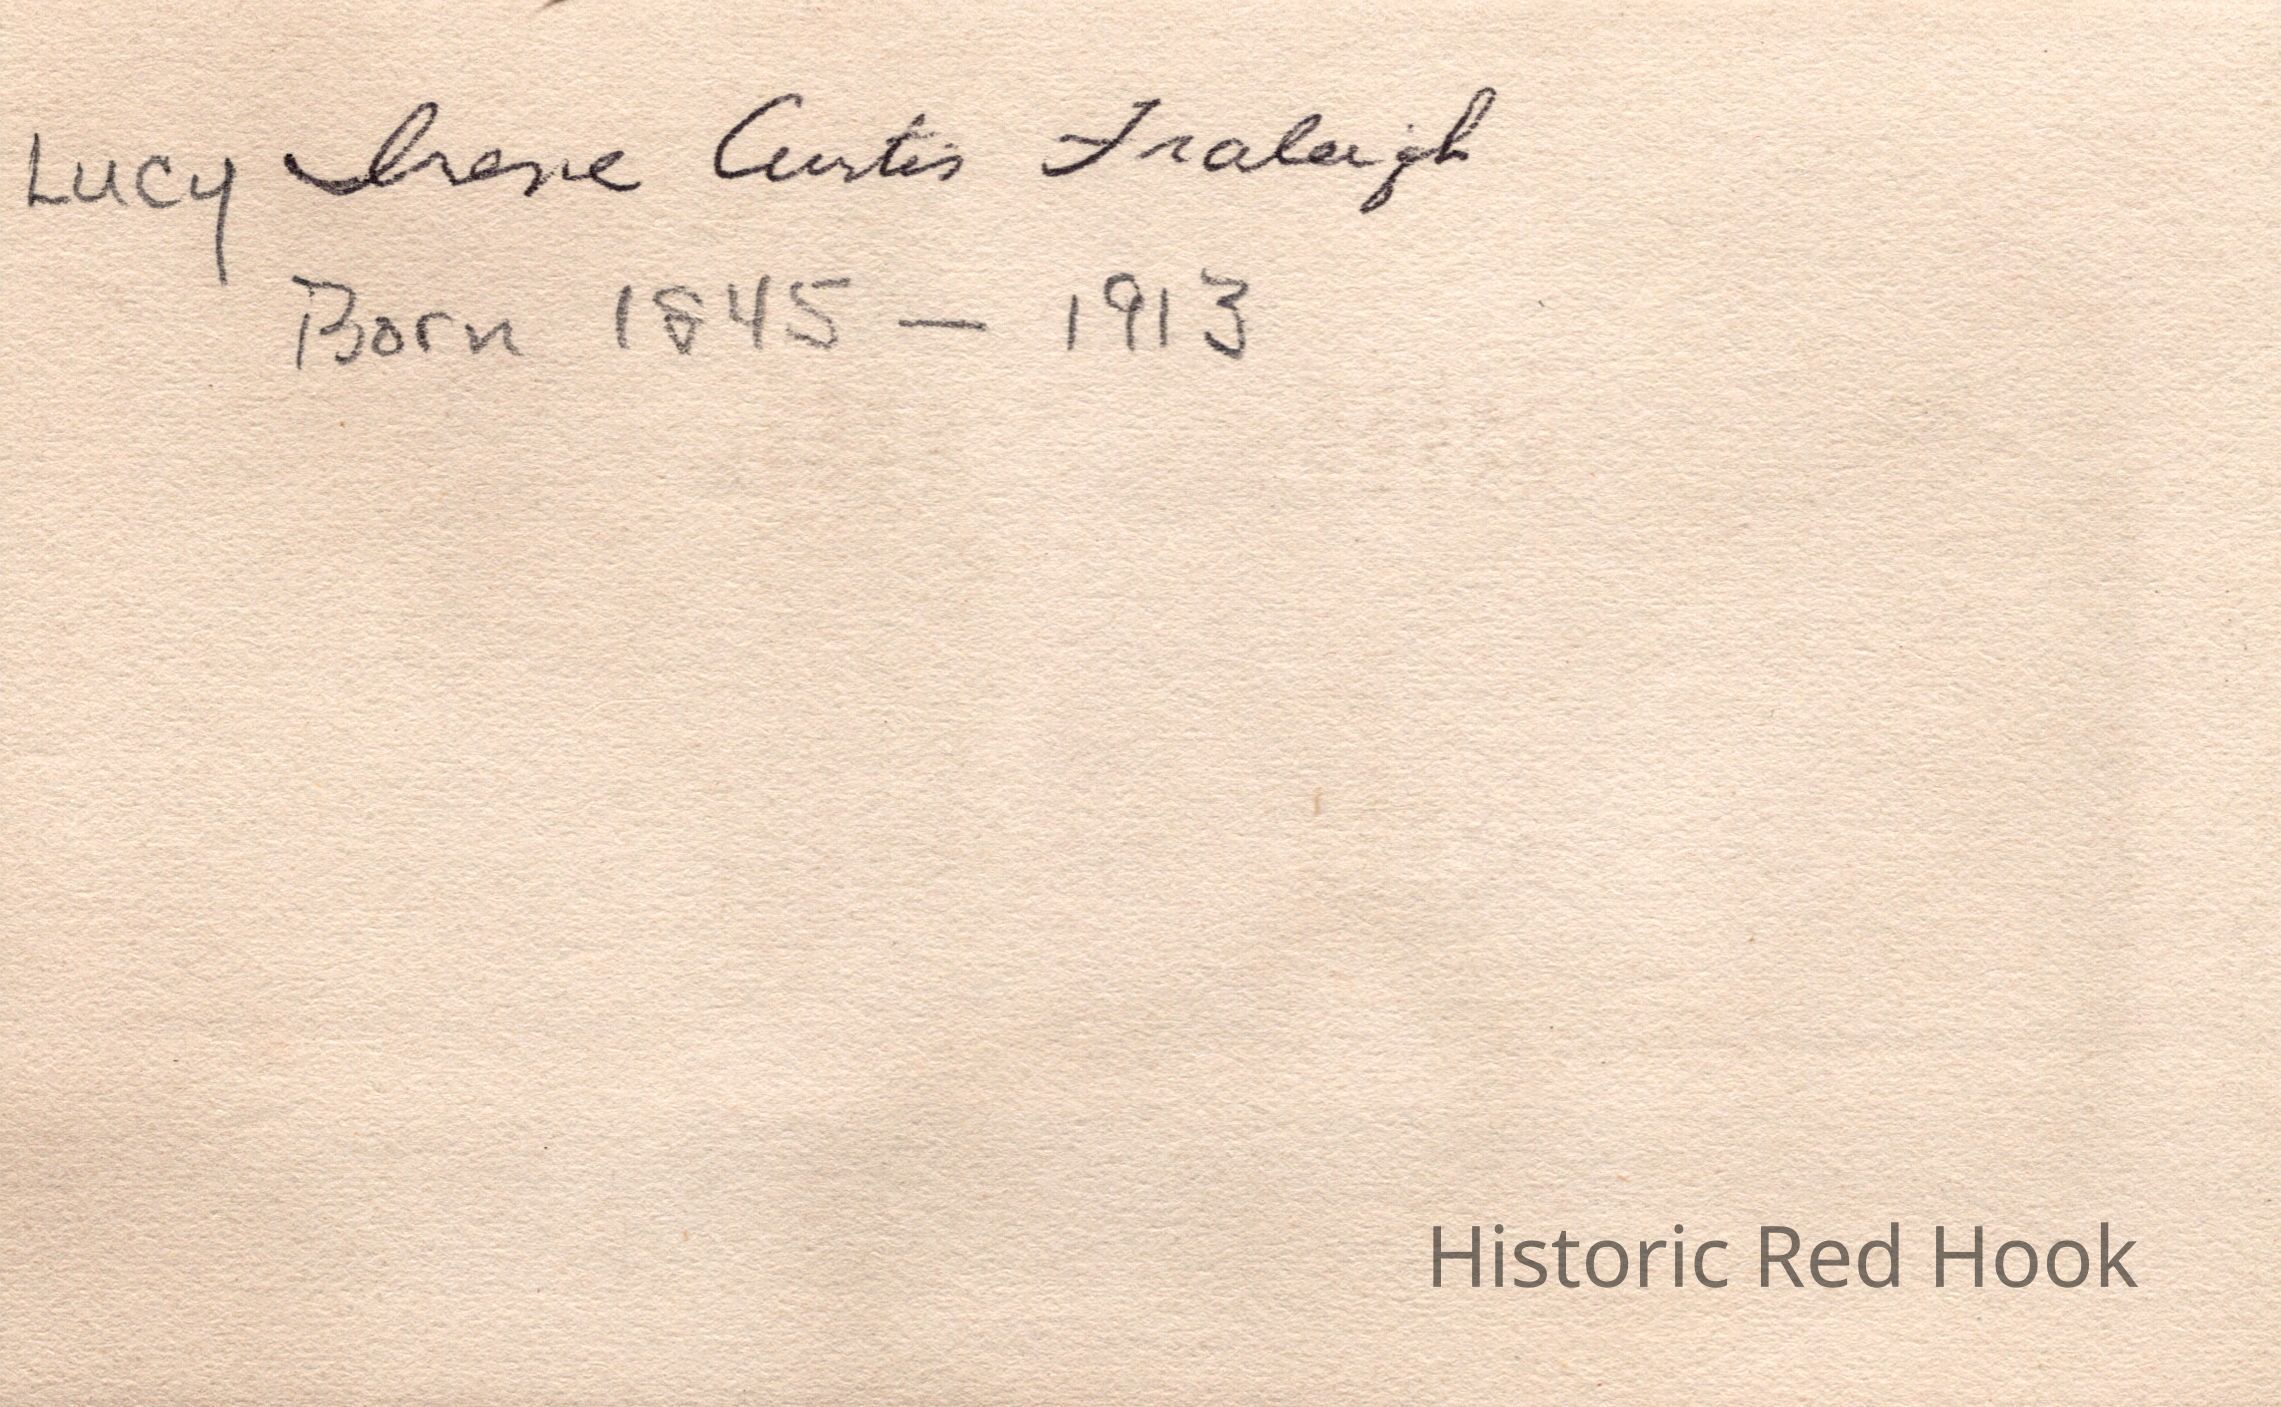 Lucy Irene Curtis Fraleigh
Born 1845 — 1913
Historic Red Hook